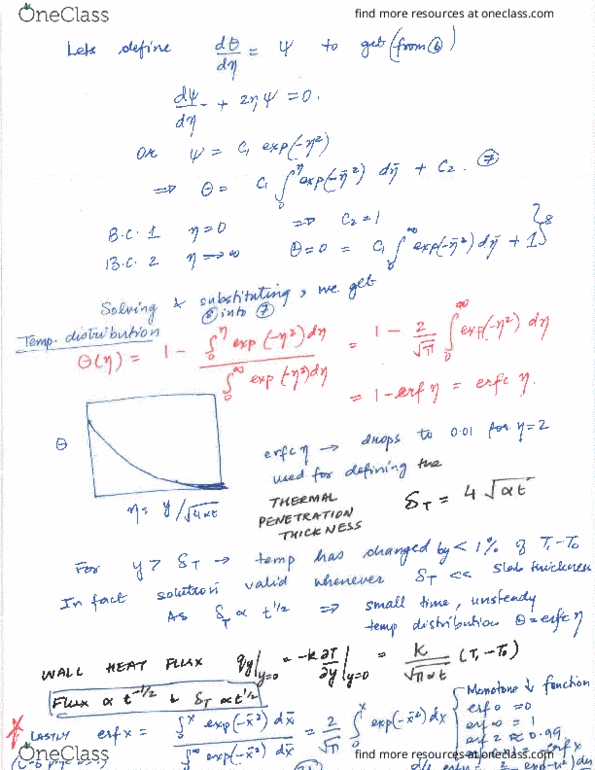 OneClass
find more resources at oneclass.com
Lets define dθ/dη = Ψ to get (from ⑥)
dΨ/dη + 2ηΨ = 0.
or Ψ = C₁ exp(-η²)
⇒ θ = C₁ ∫₀^η exp(-η̄²) dη̄ + C₂. ⑦
B.C. 1 η=0 ⇒ C₂=1
B.C. 2 η→∞ θ=0 = C₁ ∫₀^∞ exp(-η̄²) dη̄ + 1 } 8
Solving & substituting, we get
⑧ into ⑦
Temp. distribution
θ(η) = 1 - ∫₀^η exp(-η²)dη / ∫₀^∞ exp(-η²)dη = 1 - 2/√π ∫₀^∞ exp(-η²) dη
= 1-erf η = erfc η.
θ
η= y/√4αt
erfc η → drops to 0.01 for η=2
used for defining the
THERMAL
PENETRATION
THICKNESS
δ_T = 4√αt
For y > δ_T → temp has changed by < 1% of T₁-T₀
In fact solution valid whenever δ_T << slab thickness
As δ_T ∝ t^1/2 ⇒ small time, unsteady
temp distribution θ=erfc η
WALL HEAT FLUX q_y|_y=0 = -k ∂T/∂y|_y=0 = k/√παt (T₁-T₀)
Flux ∝ t^-1/2 & δ_T ∝ t^1/2
LASTLY erf x = ∫₀^x exp(-x̄²) dx̄ / ∫₀^∞ exp(-x̄²) dx̄ = 2/√π ∫₀^x exp(-x̄²) dx
Monotone ↓ function
erf 0 = 0
erf ∞ = 1
erf 2 ≈ 0.99
OneClass
find more resources at oneclass.com